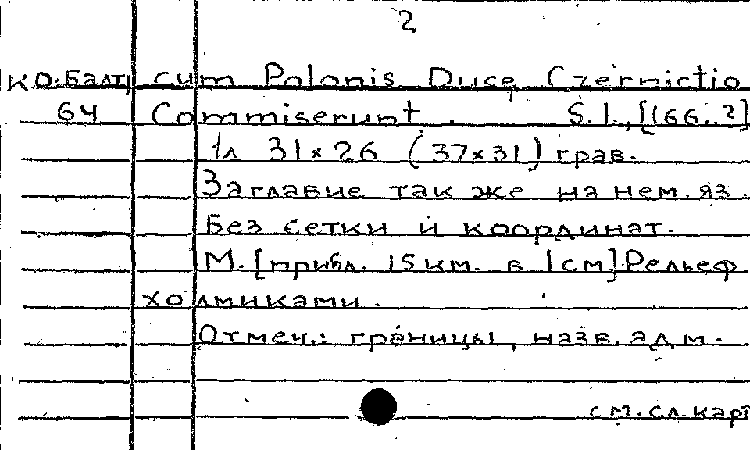 2
К О. Балт cum Polonis Duce Czernictio
64 Commiserunt. S. l., [166. ?]
1л 31 x 26 (37x31) грав.
Заглавие так же на нем. яз.
Без сетки и координат.
М. [прибл. 15 км. в 1 см] Рельеф
холмиками.
Отмеч.: границы, назв. адм.
см. сл. карт